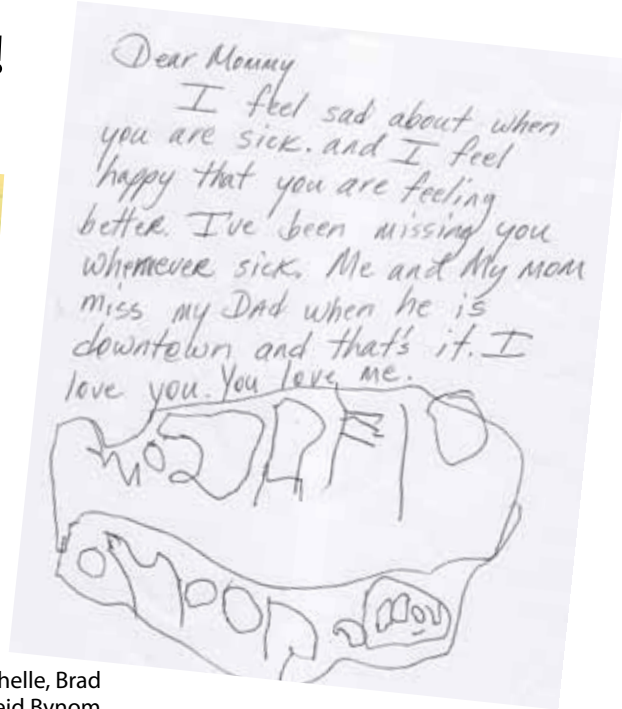 !
Dear Mommy
I feel sad about when
you are sick. and I feel
happy that you are feeling
better. I've been missing you
whenever sick. Me and My mom
miss my DAD when he is
downtown and that's it. I
love you. You love me.
helle, Brad
eid Bynom